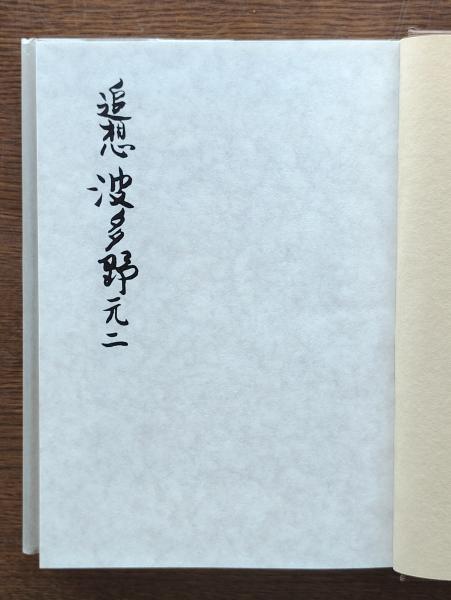 追想 波多野元二